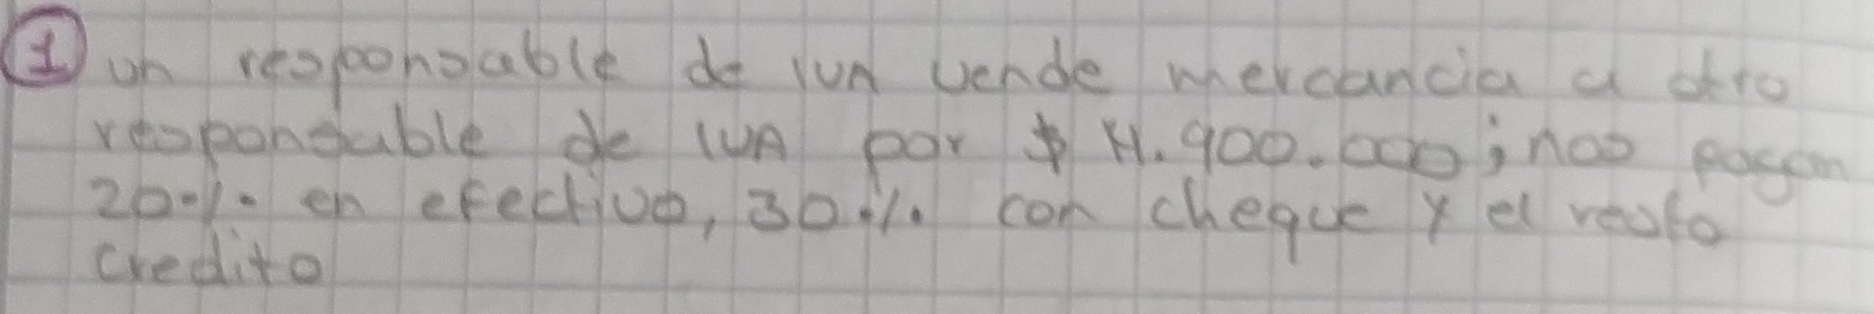 ① un responsable de IVA vende mercancia a otro
responsable de IVA por $ 4.900.000; nos pagan
20% en efectivo, 30% con cheque y el resto
credito